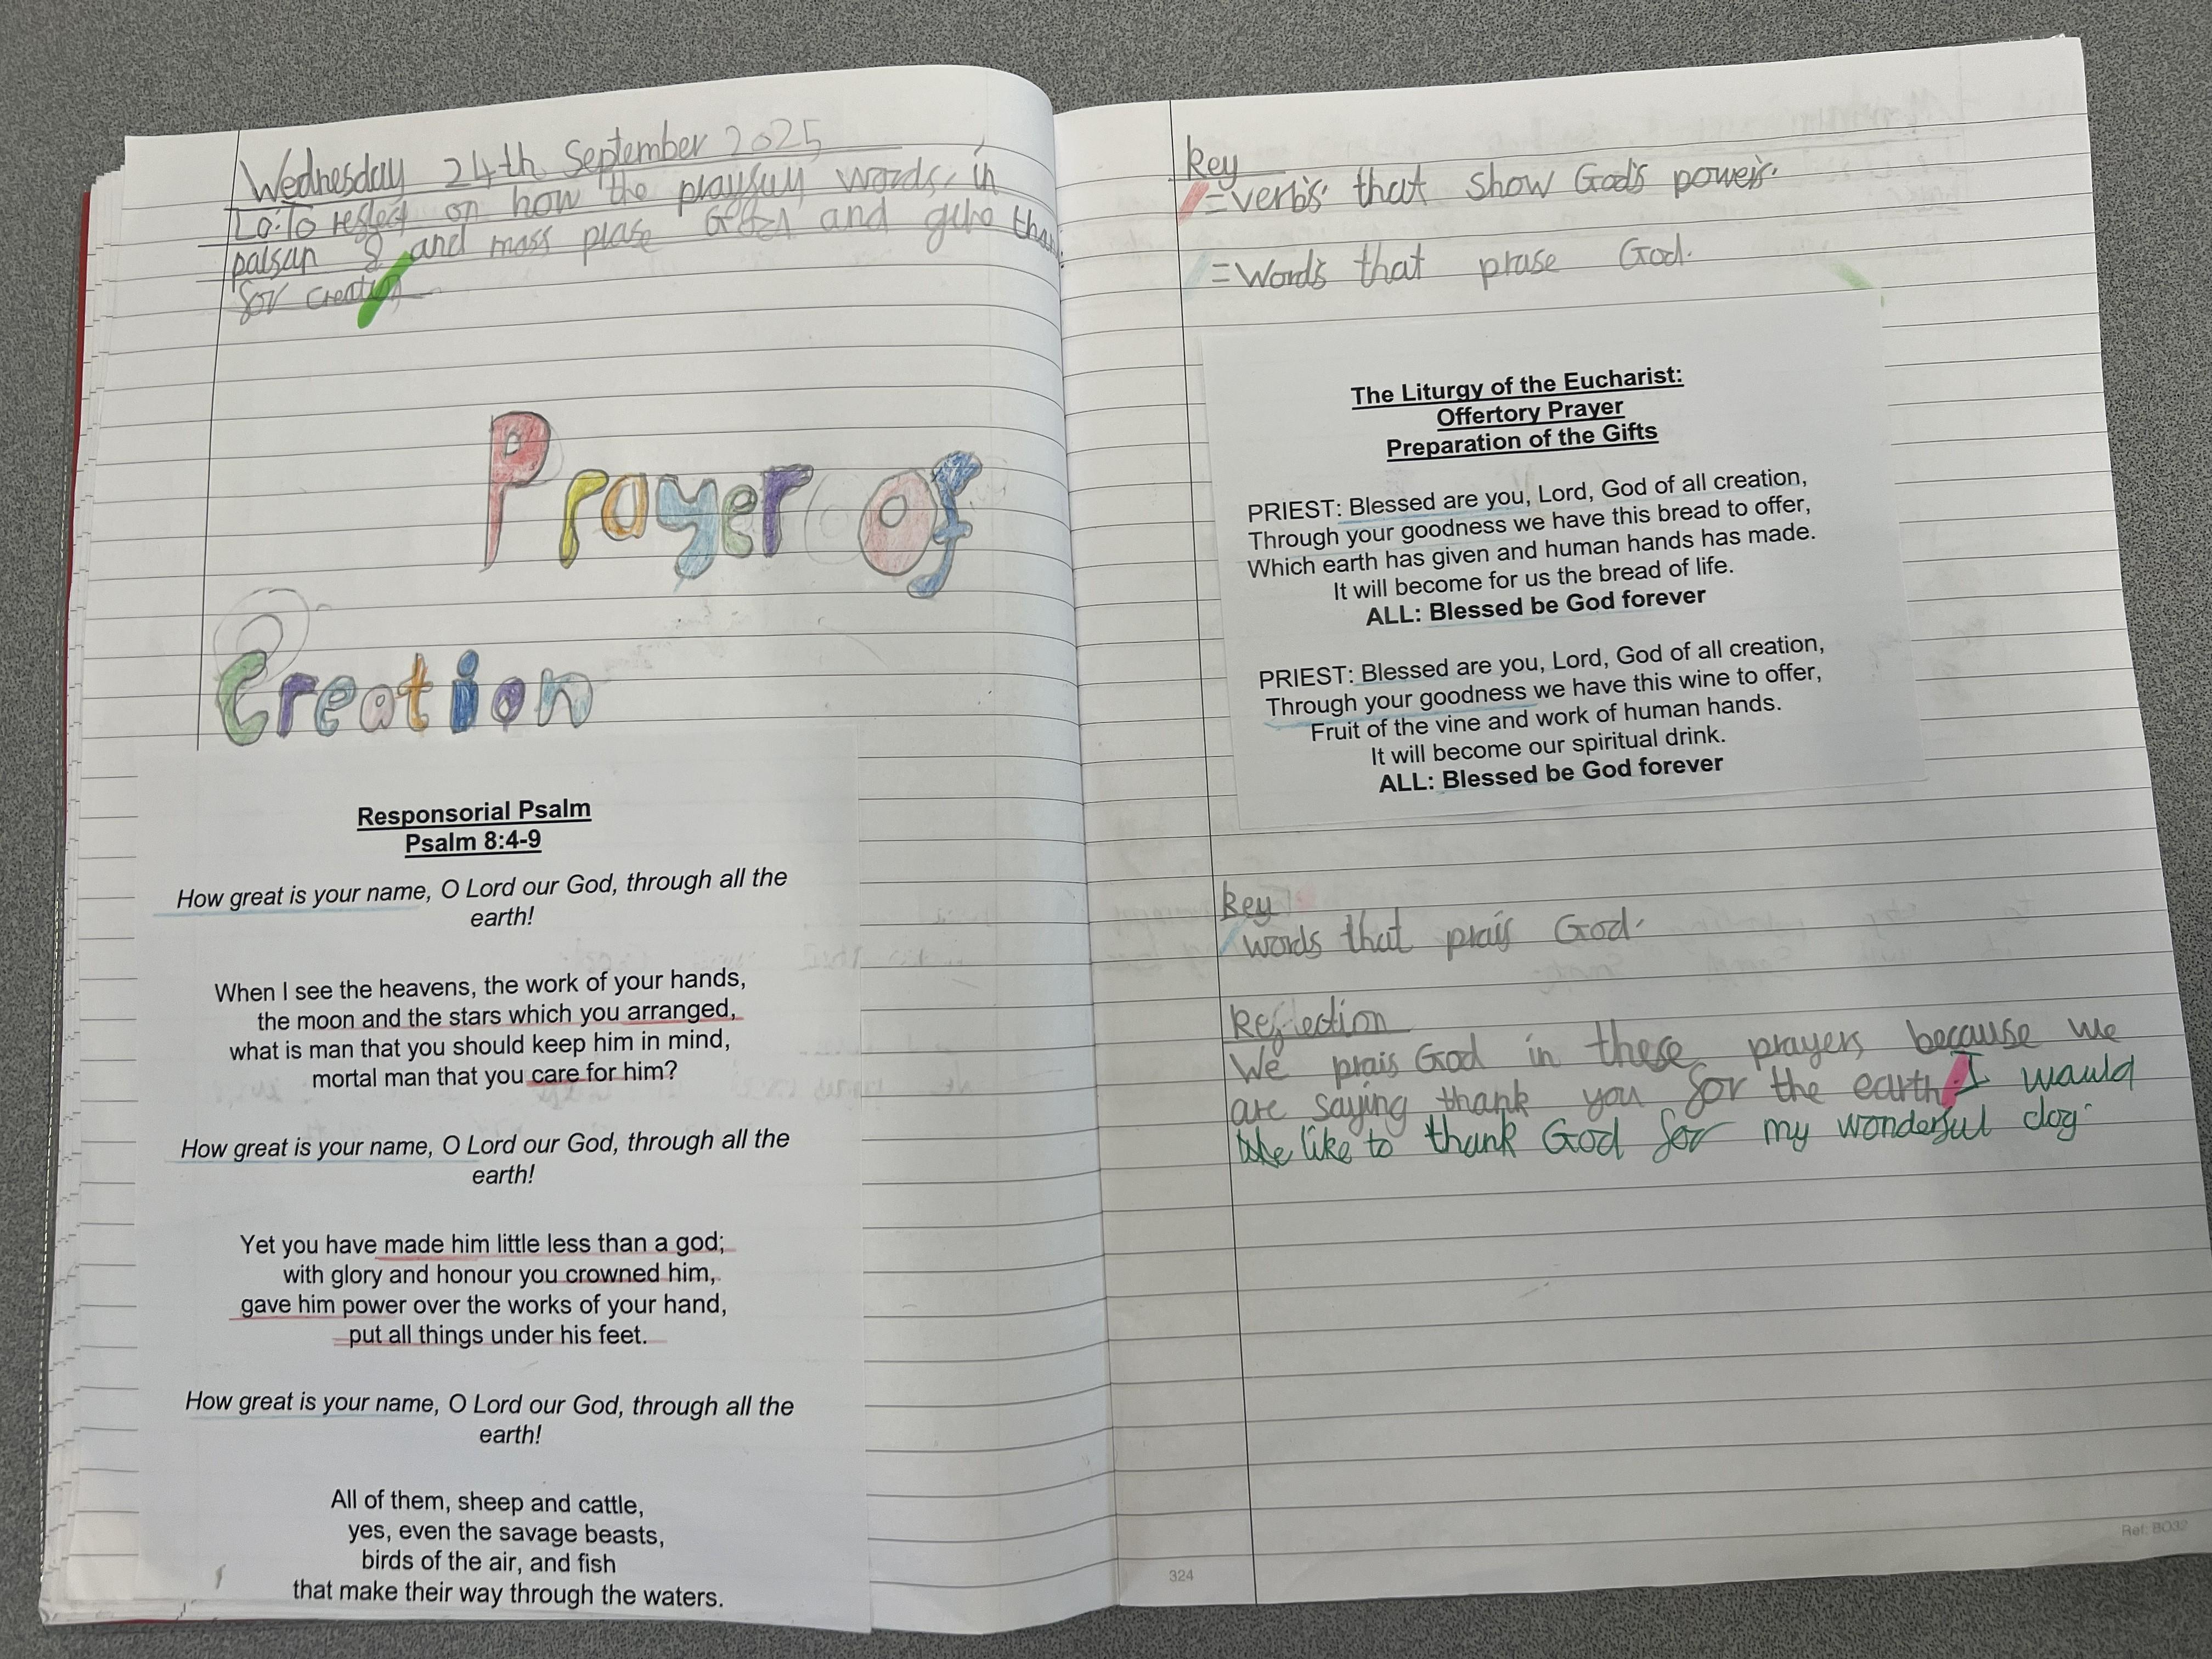 Wednesday 24th September 2025
Lo: To reflect on how the words in
palsan 8 and mass prase and give than
for creation
Prayer of
Creation
Responsorial Psalm
Psalm 8:4-9
How great is your name, O Lord our God, through all the
earth!
When I see the heavens, the work of your hands,
the moon and the stars which you arranged,
what is man that you should keep him in mind,
mortal man that you care for him?
How great is your name, O Lord our God, through all the
earth!
Yet you have made him little less than a god;
with glory and honour you crowned him,
gave him power over the works of your hand,
put all things under his feet.
How great is your name, O Lord our God, through all the
earth!
All of them, sheep and cattle,
yes, even the savage beasts,
birds of the air, and fish
that make their way through the waters.
Key
=verbs that show God's powers.
=Words that prase God.
The Liturgy of the Eucharist:
Offertory Prayer
Preparation of the Gifts
PRIEST: Blessed are you, Lord, God of all creation,
Through your goodness we have this bread to offer,
Which earth has given and human hands has made.
It will become for us the bread of life.
ALL: Blessed be God forever
PRIEST: Blessed are you, Lord, God of all creation,
Through your goodness we have this wine to offer,
Fruit of the vine and work of human hands.
It will become our spiritual drink.
ALL: Blessed be God forever
Key
words that prais God.
Reflection
We prais God in these prayers because we
are saying thank you for the earth. I would
like to thank God for my wonderful dog.
324
Ref: BO32